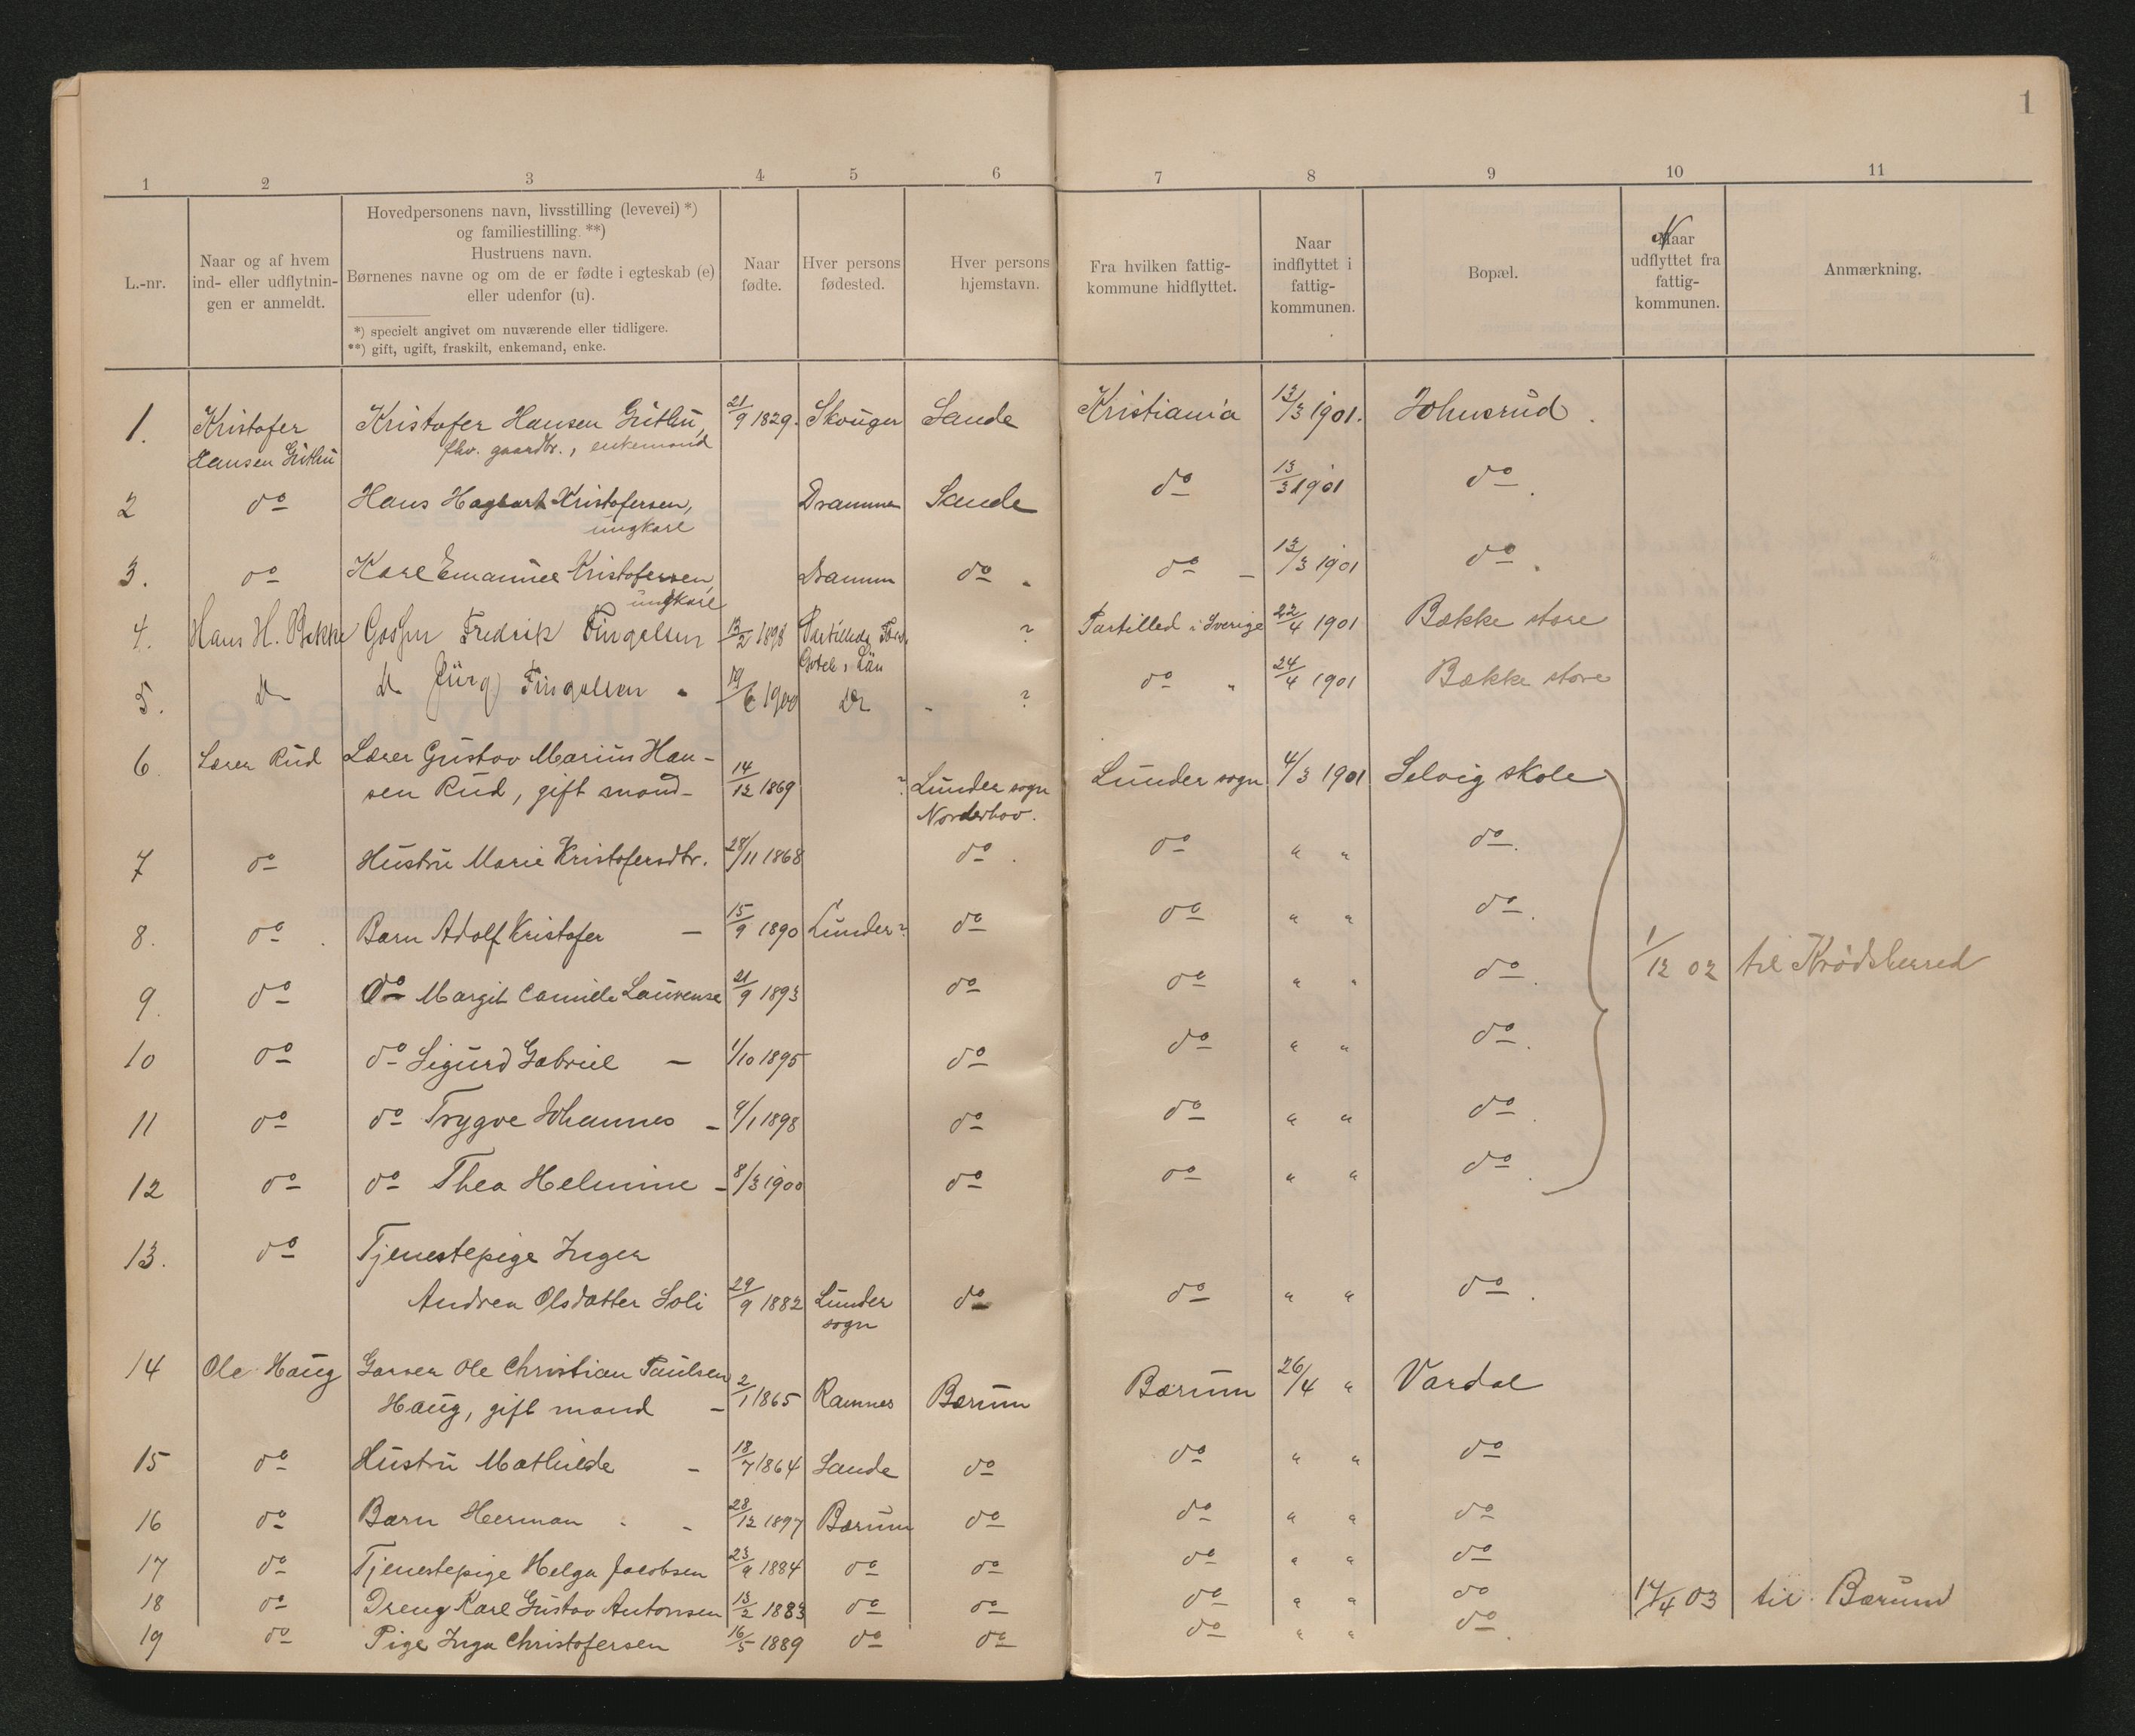 1
1 2 3 4 5 6 7 8 9 10 11
L.-nr.
Naar og af hvem
ind- eller udflytnin-
gen er anmeldt.
Hovedpersonens navn, livsstilling (levevei) *)
og familiestilling. **)
Hustruens navn.
Børnenes navne og om de er fødte i egteskab (e)
eller udenfor (u).
*) specielt angivet om nuværende eller tidligere.
**) gift, ugift, fraskilt, enkemand, enke.
Naar
fødte.
Hver persons
fødested.
Hver persons
hjemstavn.
Fra hvilken fattig-
kommune hidflyttet.
Naar
indflyttet i
fattig-
kommunen.
Bopæl.
Naar
udflyttet fra
fattig-
kommunen.
Anmærkning.
1. Kristofer Kristofer Hansen Grithu, 21/9 1829. Skouger Sande Kristiania 13/3 1901. Johnsrud.
Hansen Grithu fhv. gaardbr., enkemand
2 do Hans Hagbart Kristofersen, Drammen Sande do 13/3 1901 do.
ungkarl
3. do Karl Emanuel Kristofersen, Drammen do do 13/3 1901 do.
ungkarl
4. Hans H. Bekke Fredrik Tingelsen 13/2 1898 ? Partilled i Sverige 22/4 1901 Bække store
Goteb. Län
5. do do Tingelsen 19/6 1900 do ? do " 24/4 1901 Bække store
6. Lærer Rud Lærer Gustav Marius Han-
sen Rud, gift mand 14/12 1869 ? Lunder sogn Lunder sogn 4/3 1901 Selvig skole
Norderhov.
7 do Hustru Marie Kristofersdtr. 28/11 1868 do. do " " do.
8. do. Barn Adolf Kristofer – 15/9 1890 Lunder? do do " " do.
9. do do Margit Camilla Laurense 21/9 1893 do do " " do. 1/12 02 til Krødsherred
10 do do Sigurd Gabriel – 1/10 1895 do do " " do.
11 do do Trygve Johannes – 4/1 1898 do do " " do.
12 do do Thea Helmine – 8/3 1900 do do " " do.
13. do Tjenestepige Inger
Andrea Olsdatter Soli 29/9 1882 Lunder do do " " do.
sogn
14 Ole Haug Garver Ole Christian Paulsen
Haug, gift mand – 2/1 1865 Ramnes Bærum Bærum 26/4 " Vardal
15 do Hustru Mathilde – 18/7 1864 Sande do do " " do
16 do Barn Herman – 28/12 1897 Bærum do do " " do
17 do Tjenestepige Helga Jacobsen 23/9 1884 do do do " " do
18 do Dreng Karl Gustav Antonsen 13/2 1883 do do do " " do 17/4 03 til Bærum
19 do Pige Inga Christofersen 16/5 1889 do do do " " do.